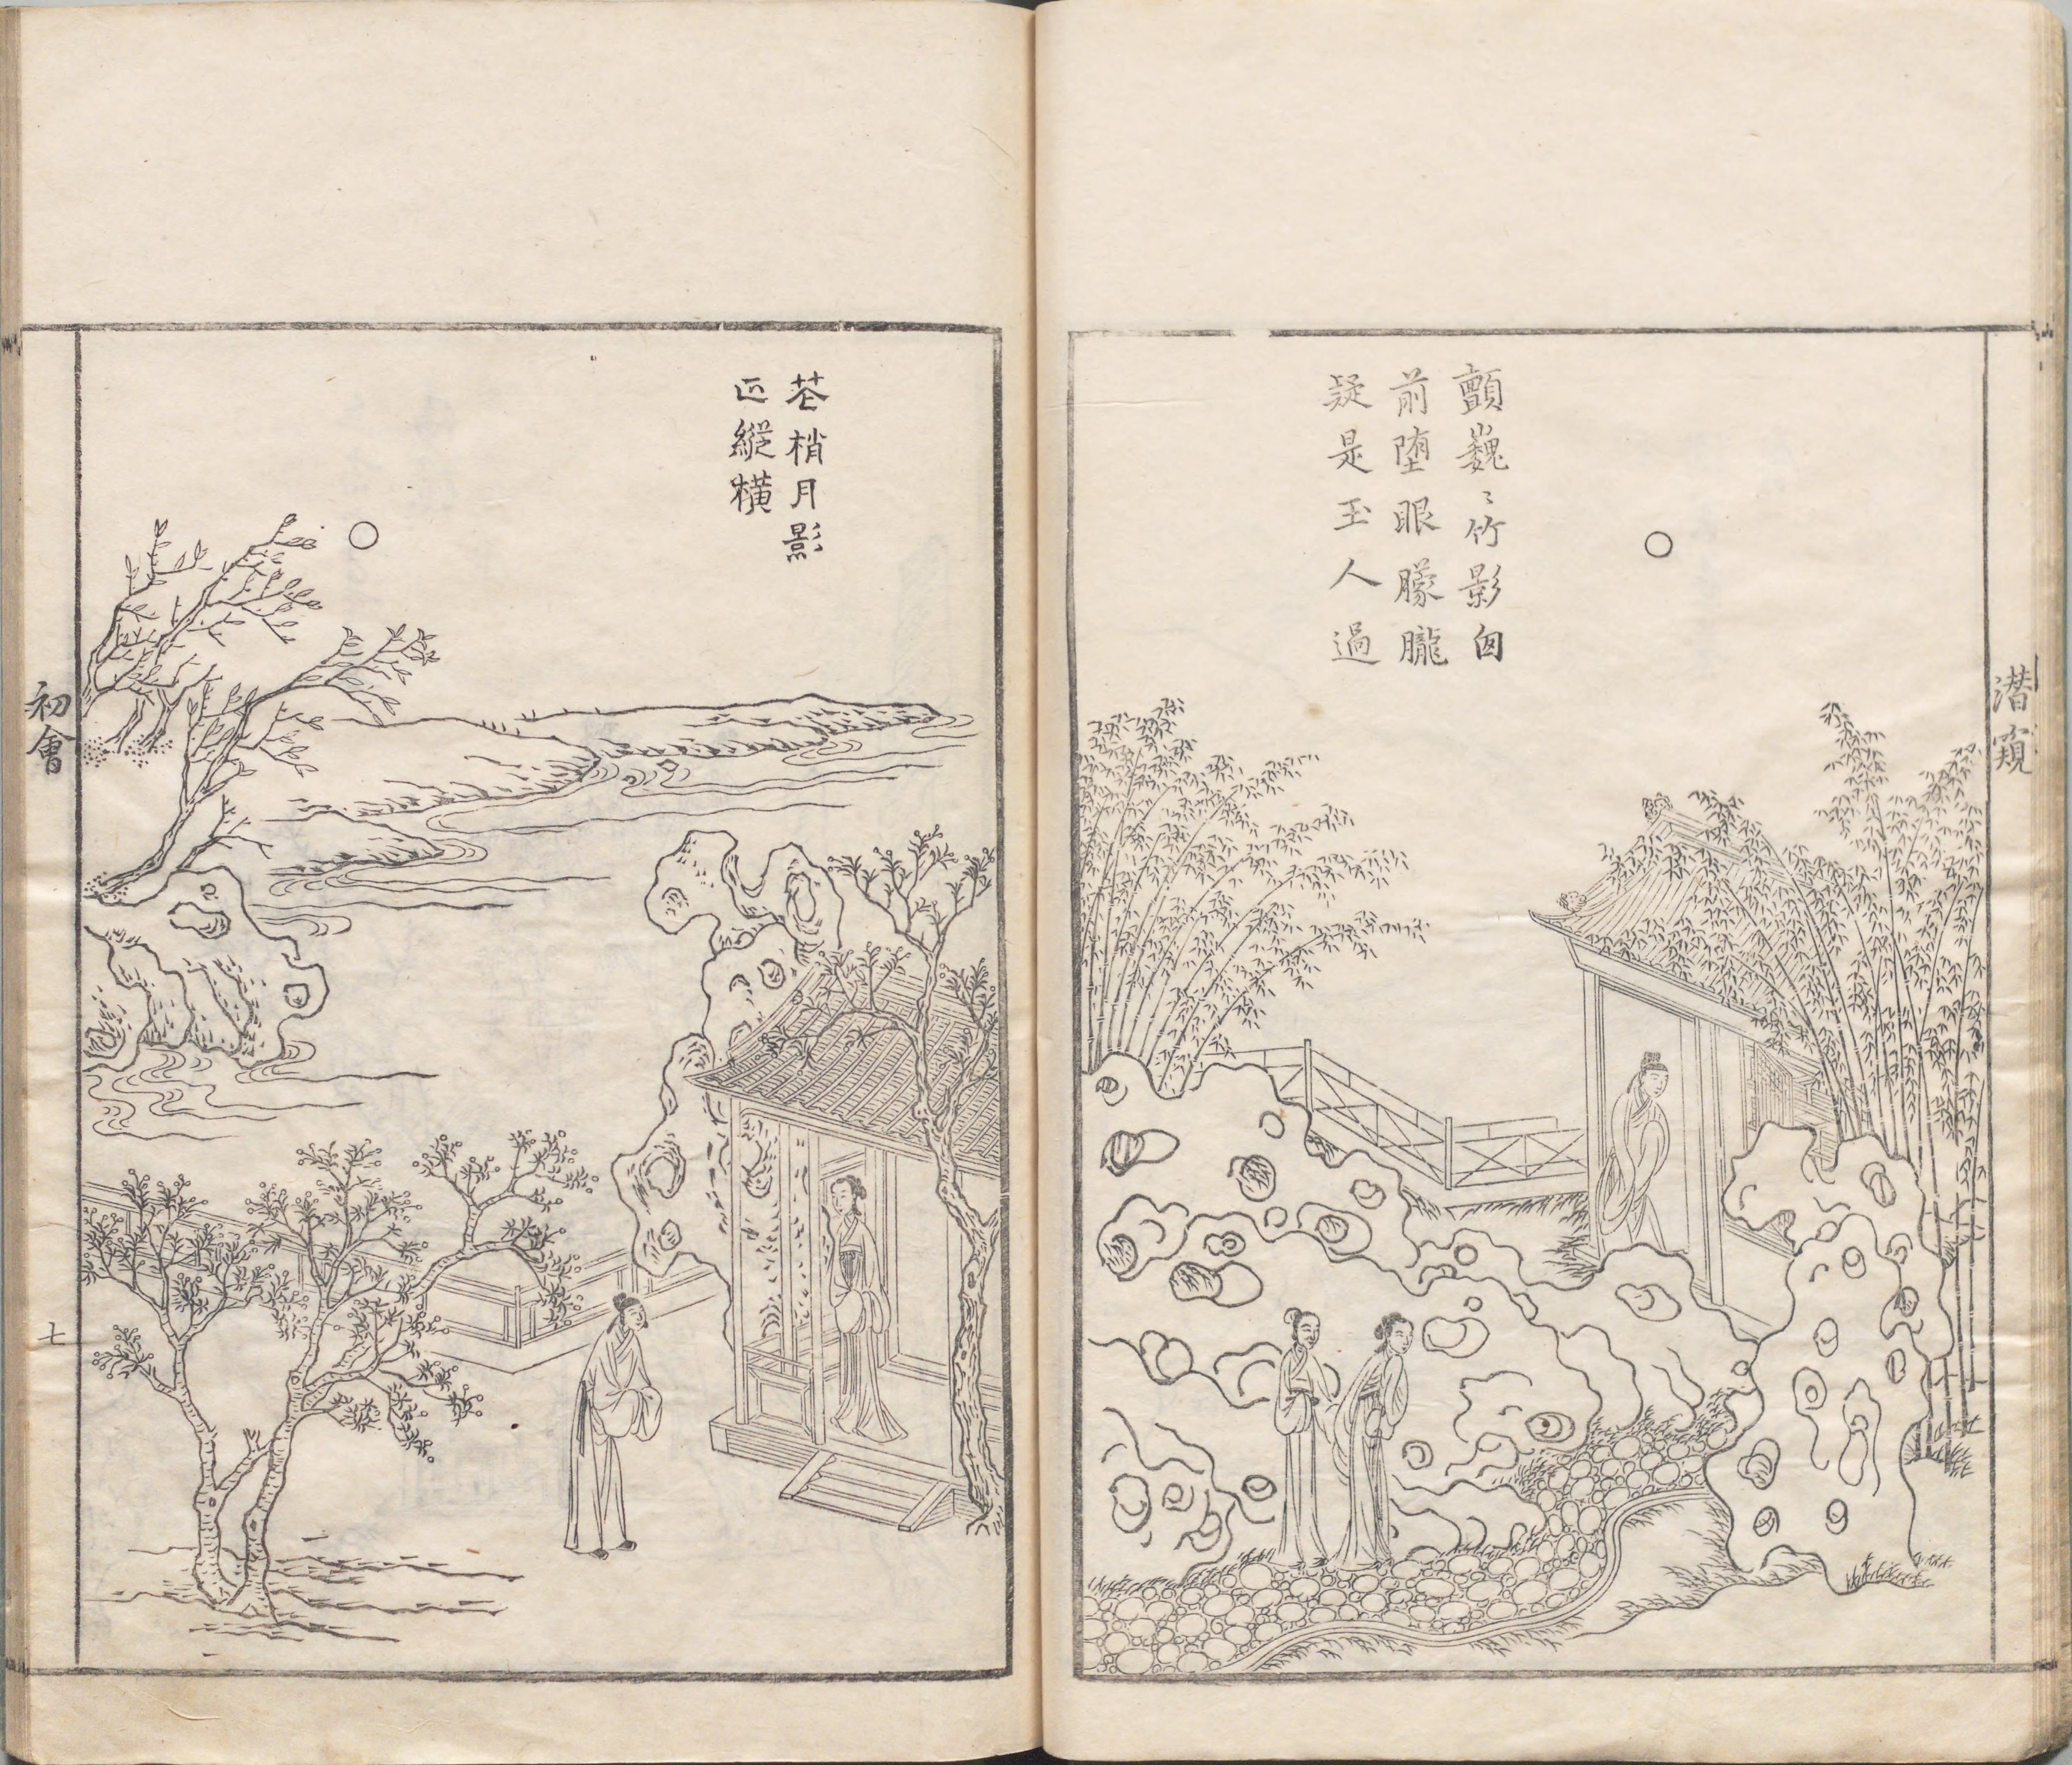 潛窺
顫巍〻竹影囱
前堕眼朦朧
疑是玉人過
苍梢月影
正縱横
初會
七